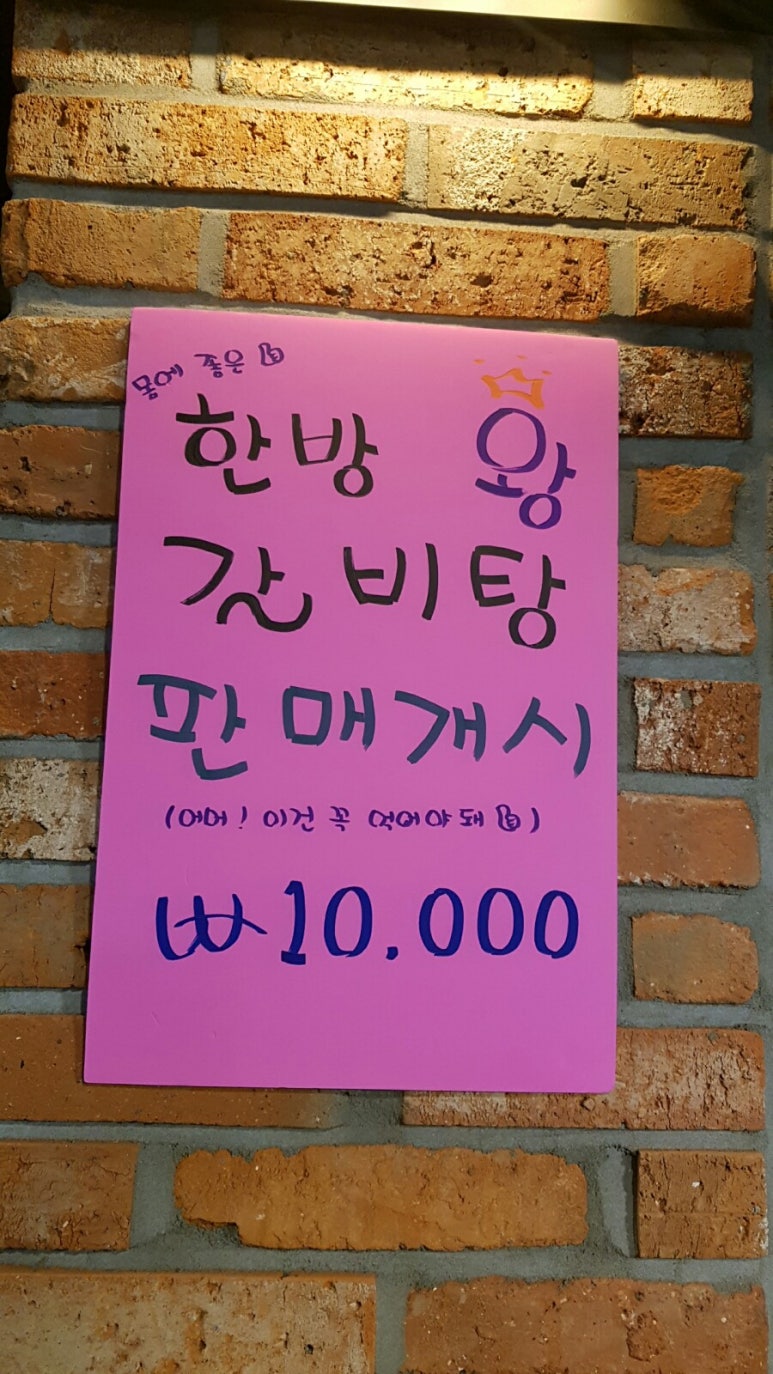 몸에 좋은
한방 왕
갈비탕
판매개시
(어머! 이건 꼭 먹어야돼)
₩10.000